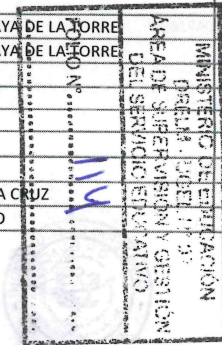 AYA DE LA TORRE
AYA DE LA TORRE
A CRUZ
O
MINISTERIO DE EDUCACIÓN
ÁREA DE SUPERVISIÓN Y GESTIÓN
DEL SERVICIO EDUCATIVO
FOLIO Nº
114